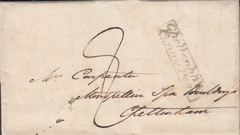 8
Mrs Carpenter
Montpellier Spa Buildings
Cheltenham